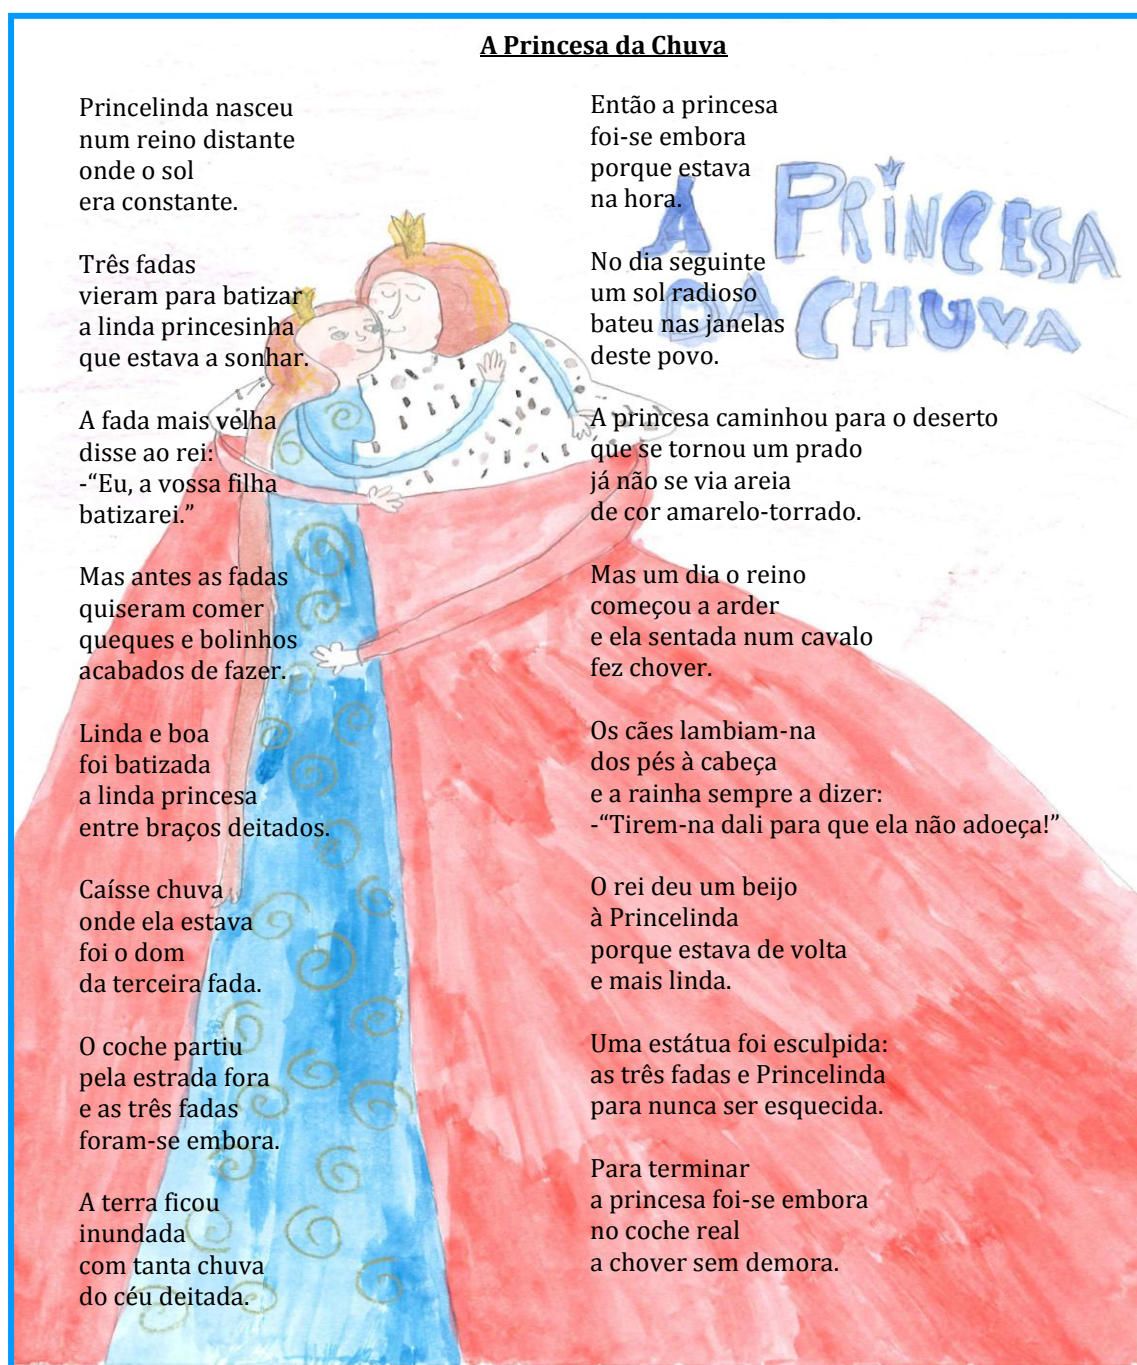 A Princesa da Chuva
Princelinda nasceu
num reino distante
onde o sol
era constante.
Três fadas
vieram para batizar
a linda princesinha
que estava a sonhar.
A fada mais velha
disse ao rei:
-“Eu, a vossa filha
batizarei.”
Mas antes as fadas
quiseram comer
queques e bolinhos
acabados de fazer.
Linda e boa
foi batizada
a linda princesa
entre braços deitados.
Caísse chuva
onde ela estava
foi o dom
da terceira fada.
O coche partiu
pela estrada fora
e as três fadas
foram-se embora.
A terra ficou
inundada
com tanta chuva
do céu deitada.
Então a princesa
foi-se embora
porque estava
na hora.
No dia seguinte
um sol radioso
bateu nas janelas
deste povo.
A princesa caminhou para o deserto
que se tornou um prado
já não se via areia
de cor amarelo-torrado.
Mas um dia o reino
começou a arder
e ela sentada num cavalo
fez chover.
Os cães lambiam-na
dos pés à cabeça
e a rainha sempre a dizer:
-“Tirem-na dali para que ela não adoeça!”
O rei deu um beijo
à Princelinda
porque estava de volta
e mais linda.
Uma estátua foi esculpida:
as três fadas e Princelinda
para nunca ser esquecida.
Para terminar
a princesa foi-se embora
no coche real
a chover sem demora.
A PRINCESA
DA CHUVA